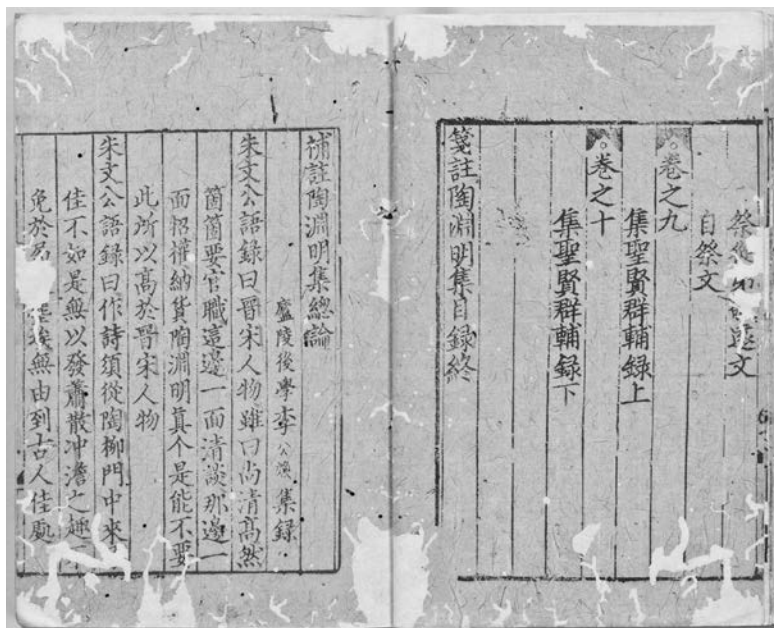 祭從弟遠文
自祭文
卷之九
集聖賢群輔録上
卷之十
集聖賢群輔録下
箋註陶淵明集目録終
補註陶淵明集總論
廬陵後學李公煥集録
朱文公語録曰晉宋人物雖曰尚清髙然
箇箇要官職這邊一面清談那邊一
面招權納貨陶淵明真个是能不要
此所以高於晉宋人物
朱文公語録曰作詩須從陶柳門中來
佳不如是無以發蕭散冲澹之趣不
免於局埃無由到古人佳處